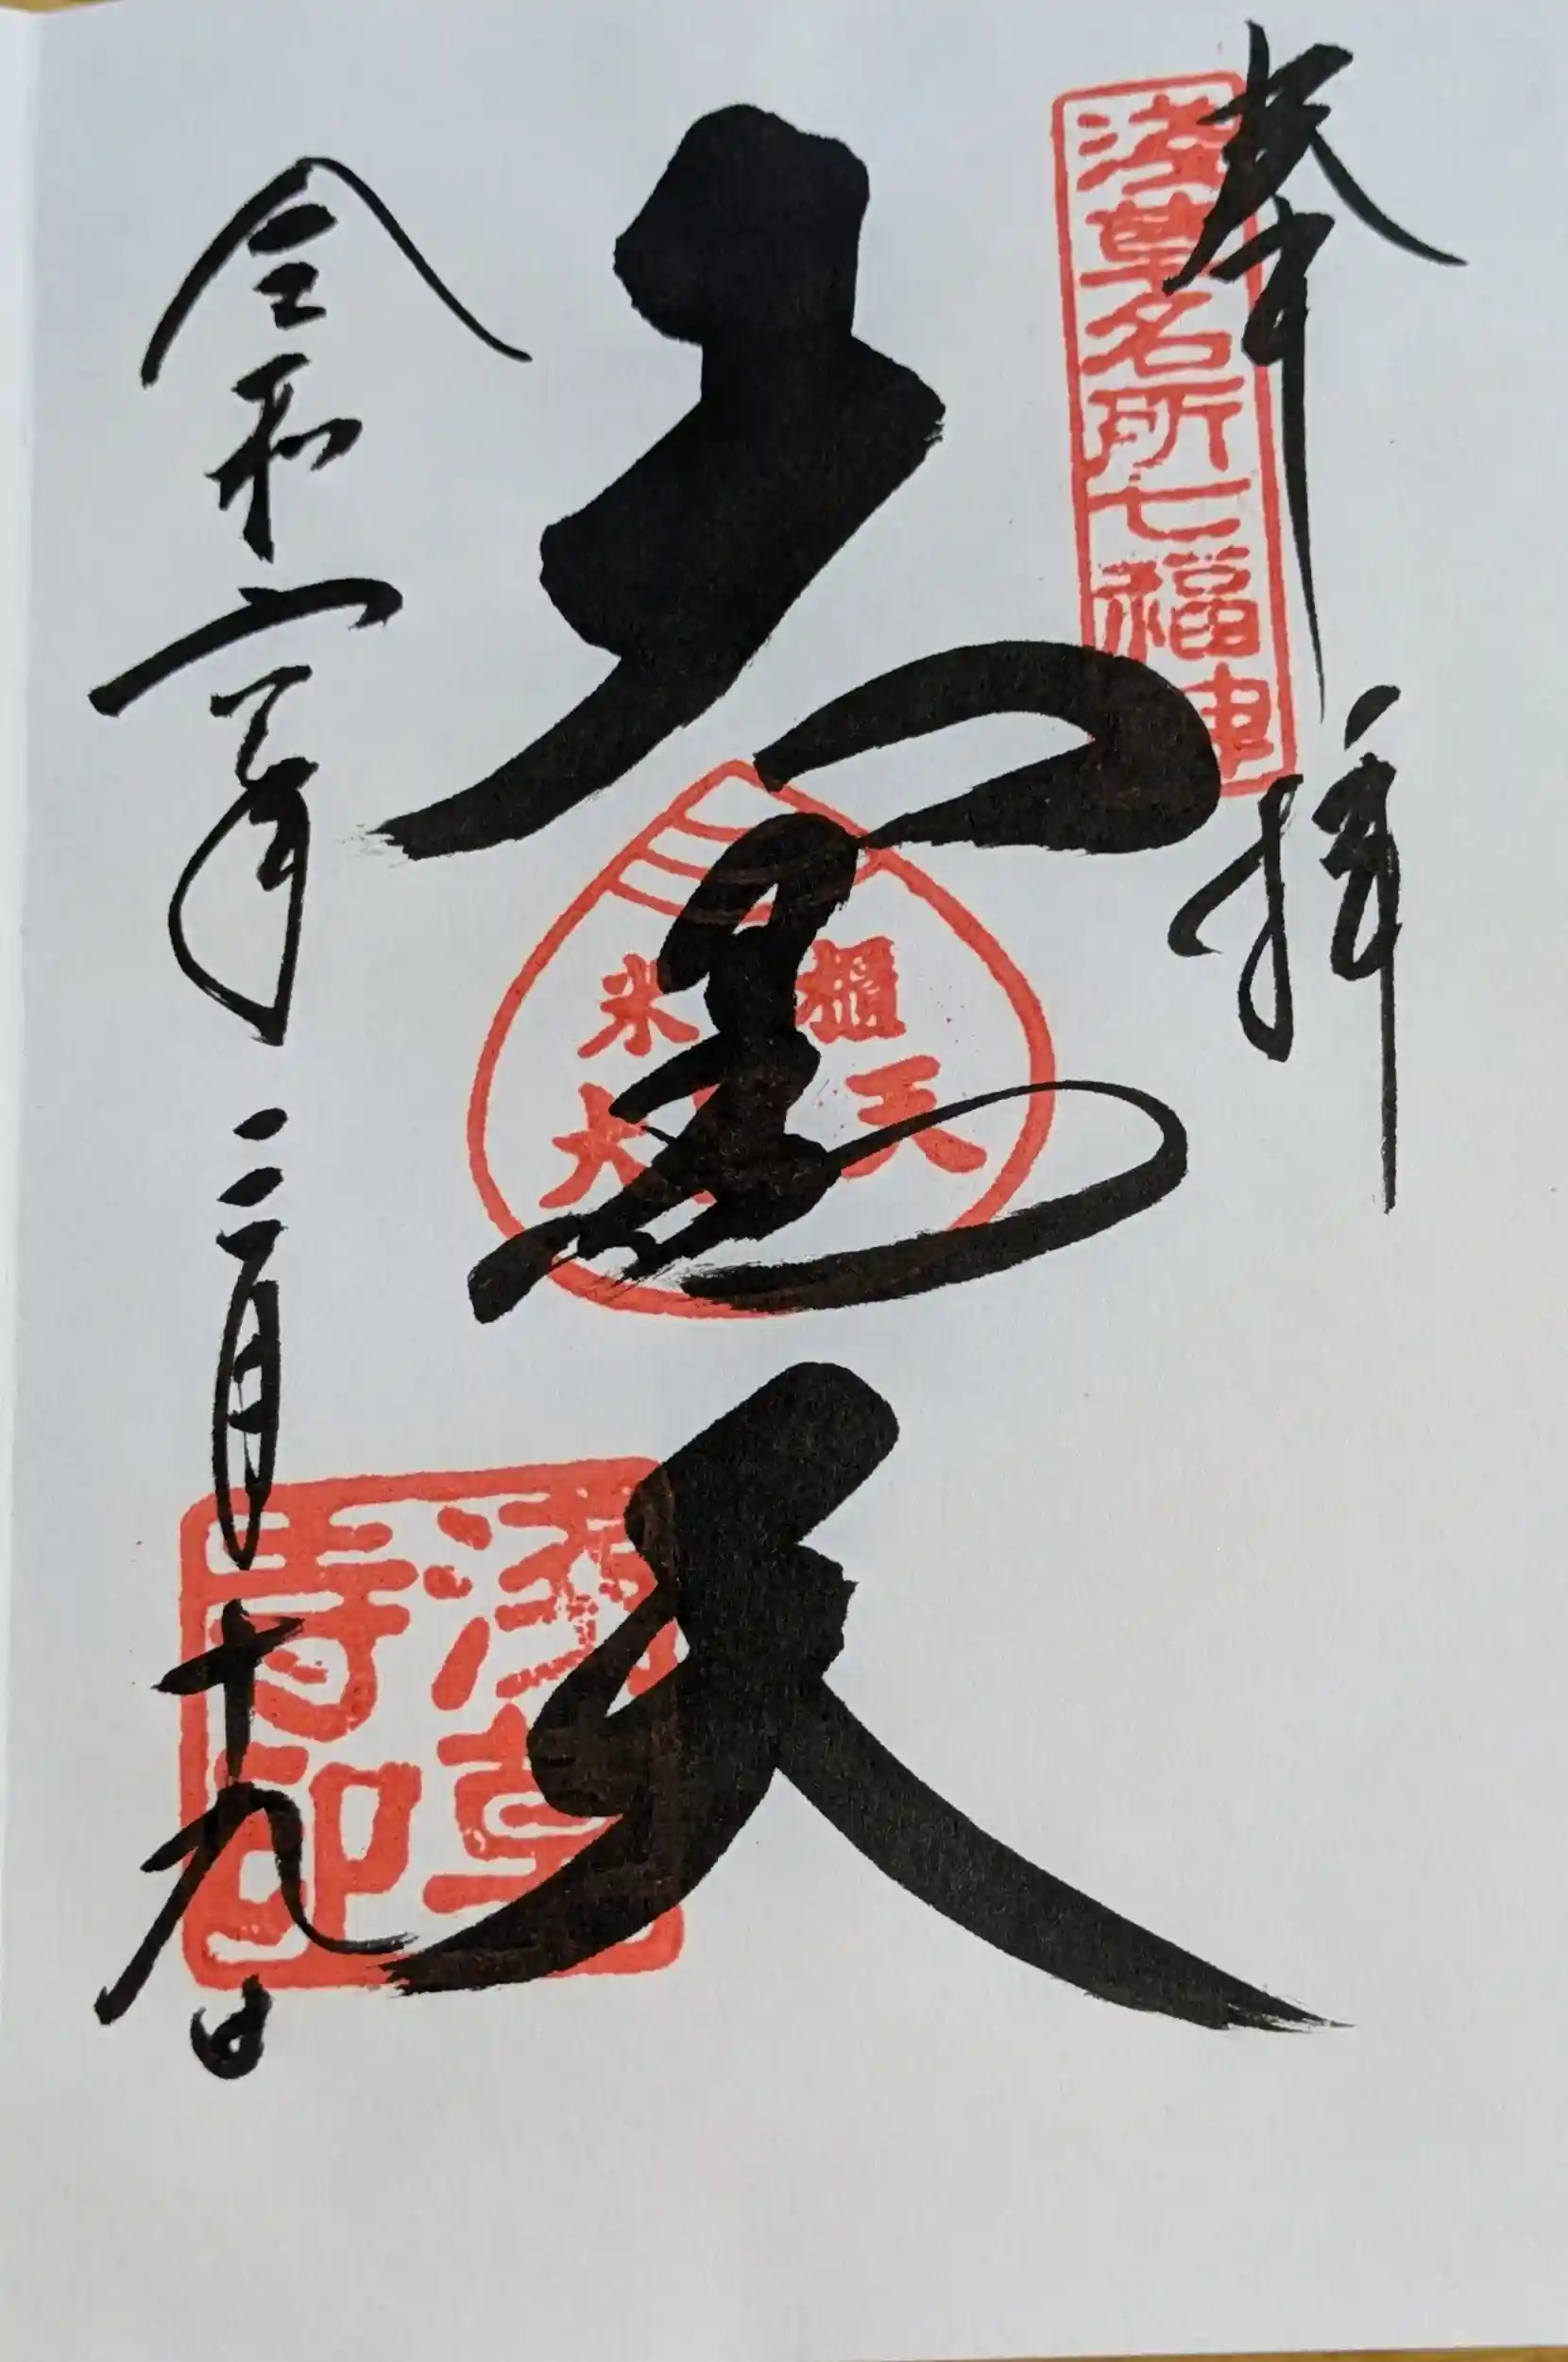 奉拝
淺草名所七福神
大黒天
米櫃
大天
淺草寺印
令和六年三月十九日